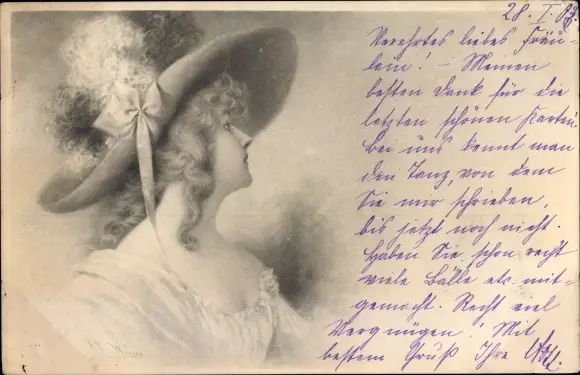 28. I. 03.
Verehrtes liebes Fräu-
lein! - Meinen
besten Dank für die
letzten schönen Karten.
Bei uns kennt man
den Tanz, von dem
Sie mir schrieben,
bis jetzt noch nicht.
Haben Sie schon recht
viele Bälle etc. mit-
gemacht. Recht viel
Vergnügen! Mit
bestem Gruß Ihre